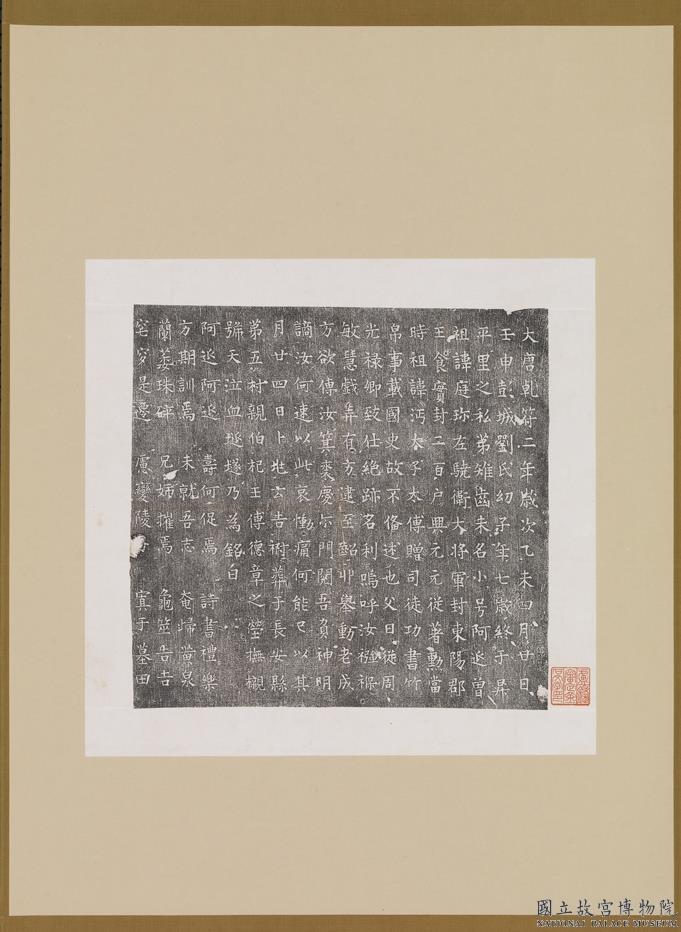 大唐乹符二年歲次乙未四月廿日
壬申彭城劉氏幼子年七歲終于昇
平里之私第雉齒未名小号阿延曾
祖諱庭珎左驍衛大將軍封東陽郡
王食實封二百户興元元從著勳當
時祖諱沔太子太傅贈司徒功書竹
帛事載國史故不俻述也父曰從周
光禄卿致仕絶跡名利嗚呼汝襁褓
敏慧戲弄有方逮至齠丱舉動老成
方欲傳汝箕裘慶尒門閥吾負神明
謫汝何速以此哀慟痛何能已以其
月廿四日卜兆云吉祔葬于長安縣
第五村親伯杞王傅德章之塋撫櫬
號天泣血 乃為銘曰
阿延阿延 壽何促焉 詩書禮樂
方期訓焉 未就吾志 奄歸黄泉
蘭萎珠碎 兄姊摧焉 龜筮告吉
窀穸是邊 慮變陵 寘于墓田
國立故宮博物院
NATIONAL PALACE MUSEUM